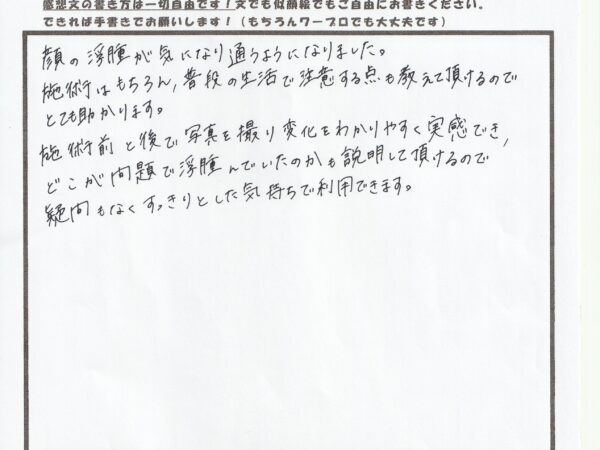 感想文の書き方は一切自由です！文でも似顔絵でもご自由にお書きください。
できれば手書きでお願いします！（もちろんワープロでも大丈夫です）
顔の浮腫が気になり通うようになりました。
施術はもちろん，普段の生活で注意する点も教えて頂けるので
とても助かります。
施術前と後で写真を撮り変化をわかりやすく実感でき，
どこが問題で浮腫んでいたのかも説明して頂けるので
疑問もなくすっきりとした気持ちで利用できます。